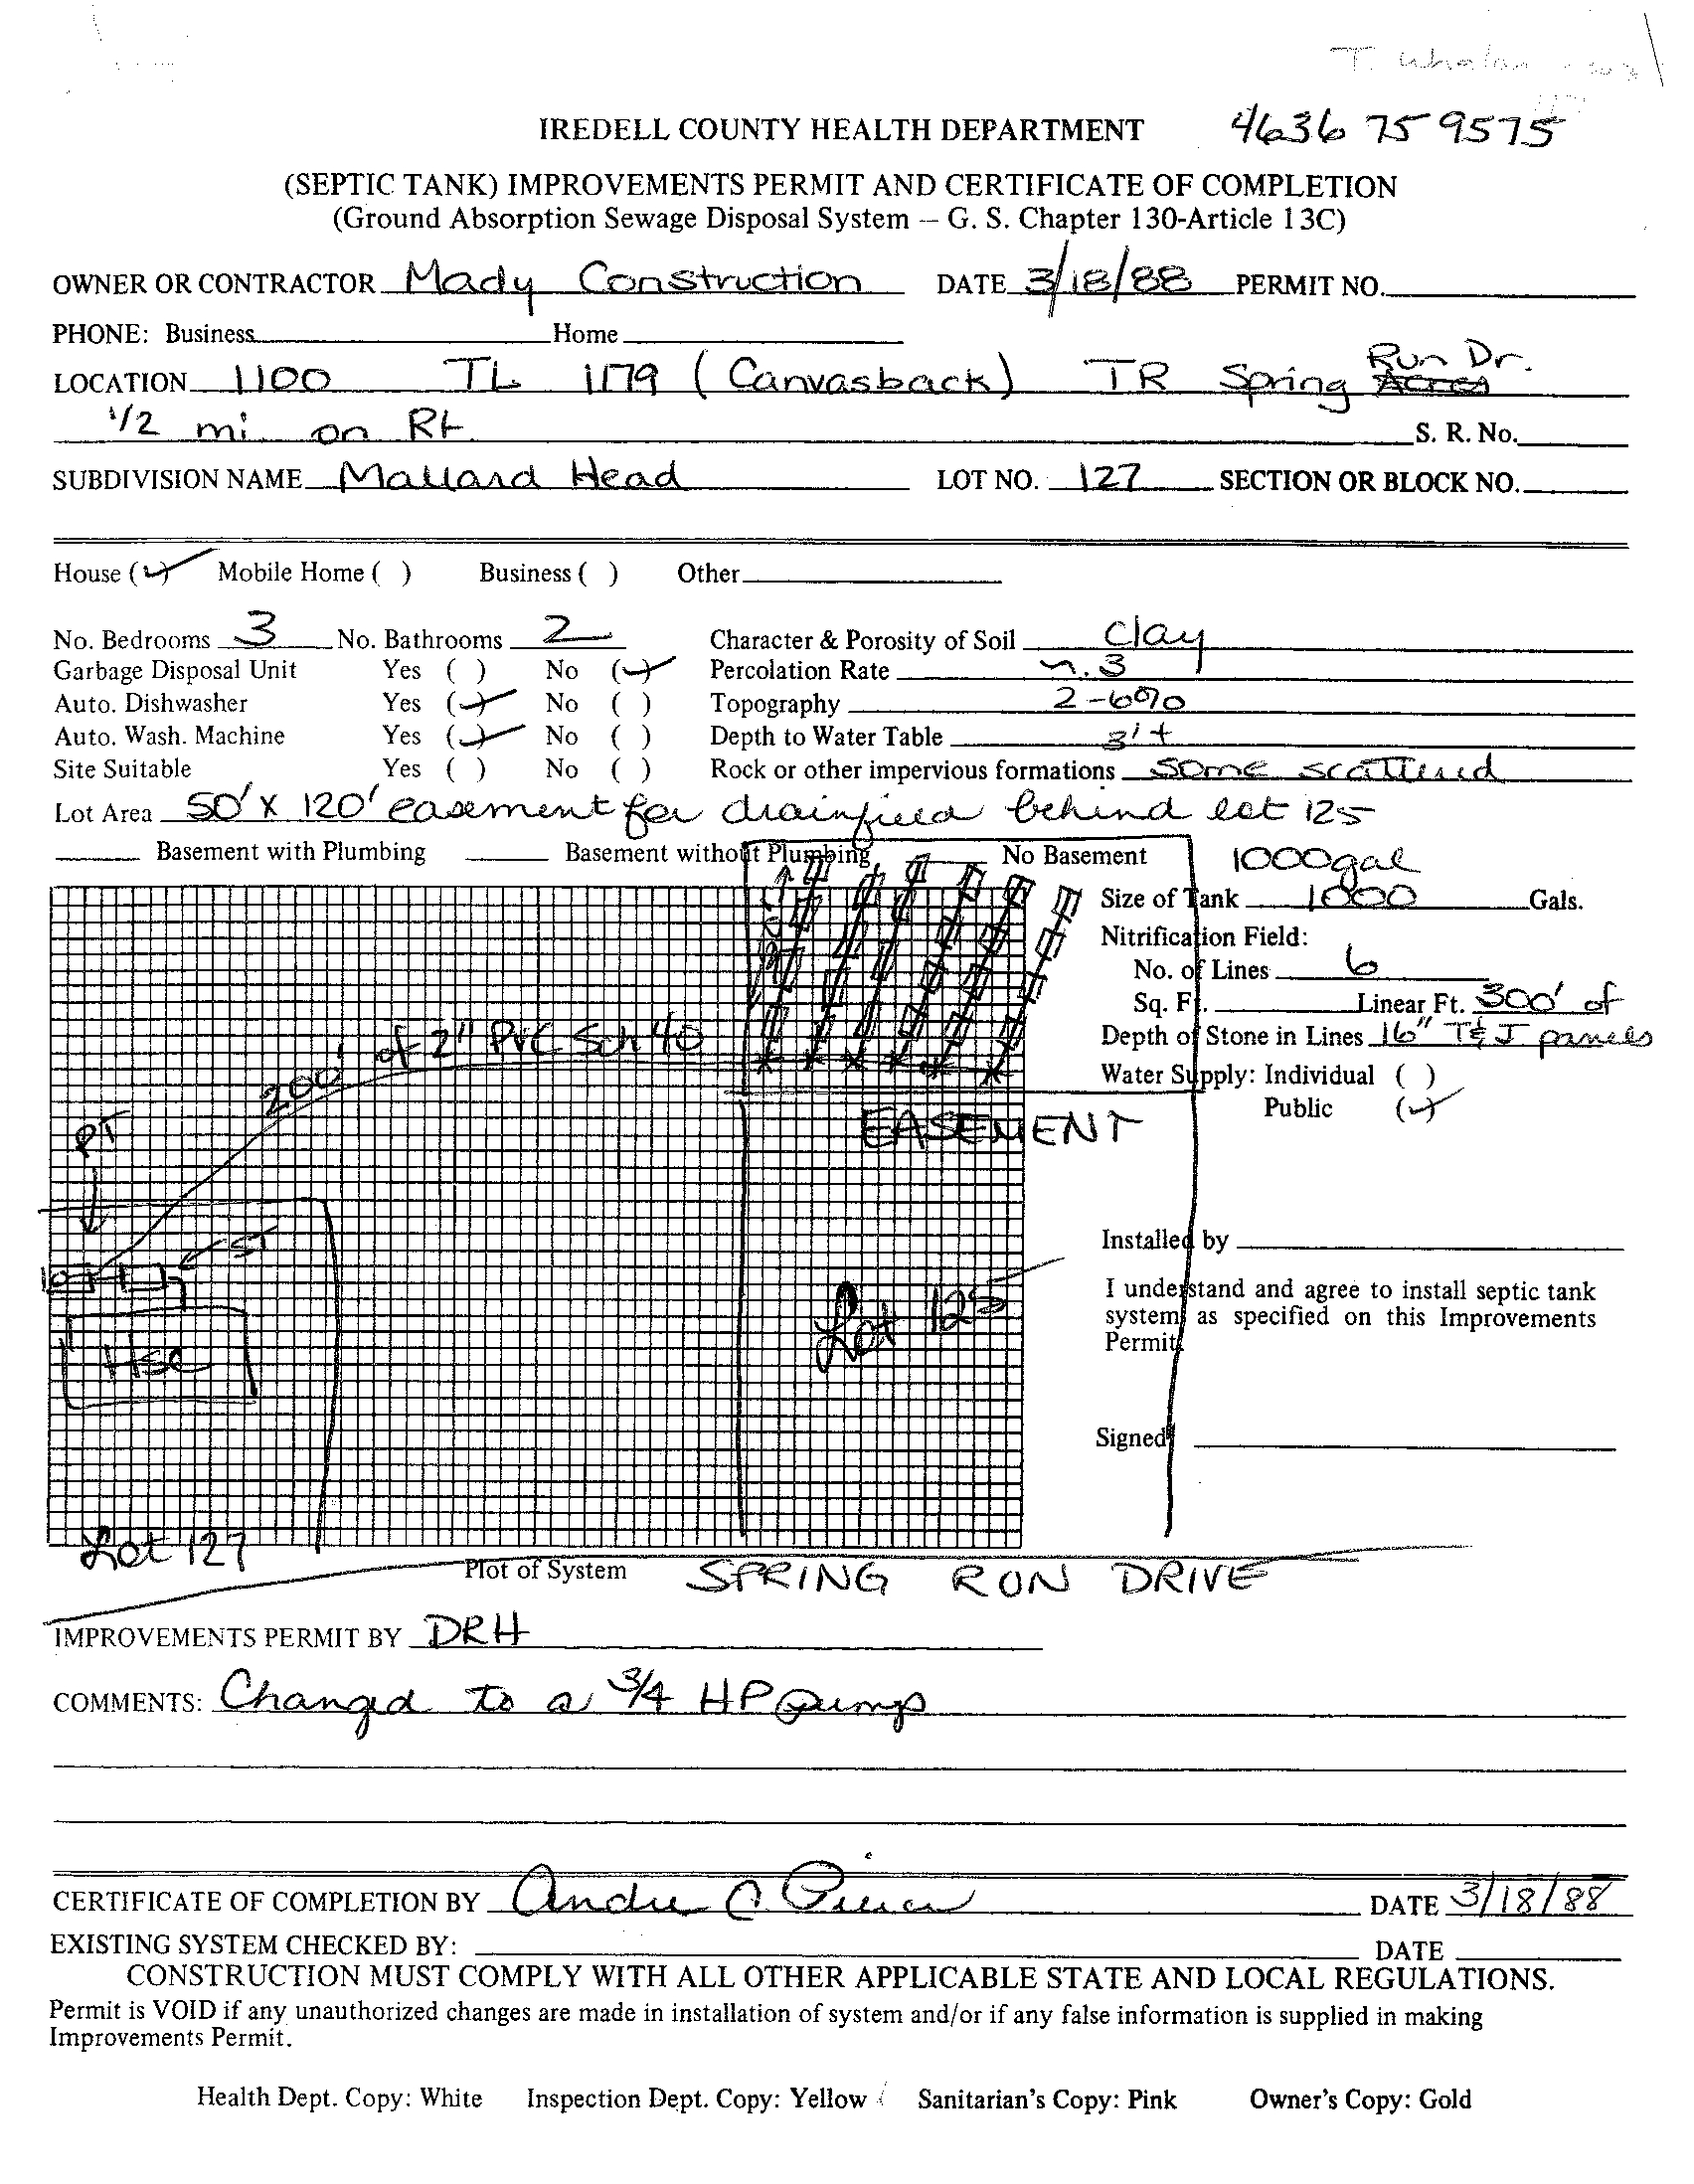 T. Whalan
IREDELL COUNTY HEALTH DEPARTMENT 4636 75 9575
(SEPTIC TANK) IMPROVEMENTS PERMIT AND CERTIFICATE OF COMPLETION
(Ground Absorption Sewage Disposal System – G. S. Chapter 130-Article 13C)
OWNER OR CONTRACTOR Mady Construction DATE 3/18/88 PERMIT NO.
PHONE: Business Home
LOCATION 1100 TL 1179 (Canvasback) TR Spring Run Dr.
1/2 mi on Rt. S. R. No.
SUBDIVISION NAME Mallard Head LOT NO. 127 SECTION OR BLOCK NO.
House (✓) Mobile Home ( ) Business ( ) Other
No. Bedrooms 3 No. Bathrooms 2 Character & Porosity of Soil clay
Garbage Disposal Unit Yes ( ) No (✓) Percolation Rate ~.3
Auto. Dishwasher Yes (✓) No ( ) Topography 2-6%
Auto. Wash. Machine Yes (✓) No ( ) Depth to Water Table 3'+
Site Suitable Yes ( ) No ( ) Rock or other impervious formations some scattered
Lot Area 50' X 120' easement for drainfield behind lot 125
Basement with Plumbing Basement without Plumbing No Basement 1000gal
Size of Tank 1000 Gals.
Nitrification Field:
No. of Lines 6
Sq. Ft. Linear Ft. 300' of
Depth of Stone in Lines 16" T&J panels
Water Supply: Individual ( )
Public (✓)
200' of 2" PVC Sch 40
PT
EASEMENT
ST
Hse
Lot 125
Installed by
I understand and agree to install septic tank
system as specified on this Improvements
Permit.
Signed
Lot 127
Plot of System SPRING RUN DRIVE
IMPROVEMENTS PERMIT BY DRH
COMMENTS: Changed to a 3/4 HP pump
CERTIFICATE OF COMPLETION BY DATE 3/18/88
EXISTING SYSTEM CHECKED BY: DATE
CONSTRUCTION MUST COMPLY WITH ALL OTHER APPLICABLE STATE AND LOCAL REGULATIONS.
Permit is VOID if any unauthorized changes are made in installation of system and/or if any false information is supplied in making
Improvements Permit.
Health Dept. Copy: White Inspection Dept. Copy: Yellow Sanitarian's Copy: Pink Owner's Copy: Gold